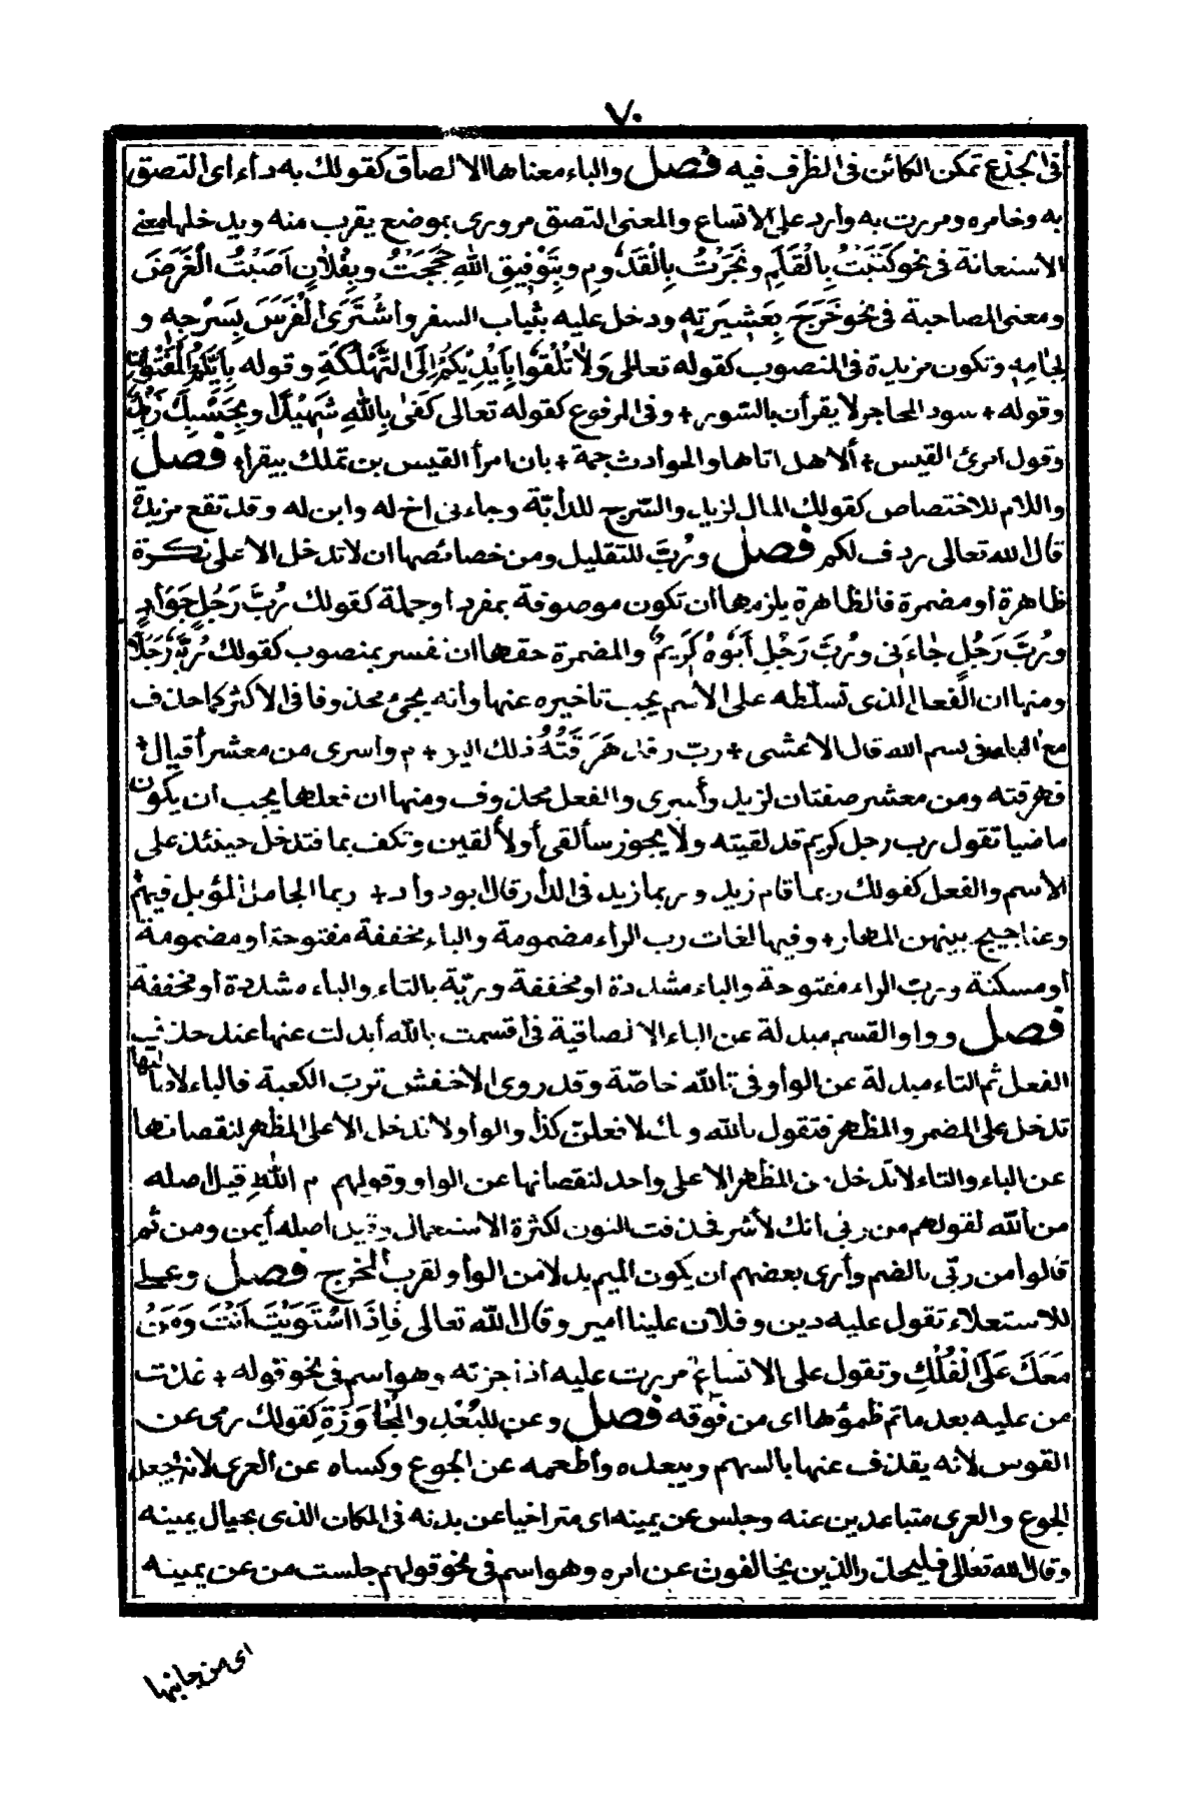 ٧٠
فى الجذع تمكن الكائن فى الظرف فيه فصل والباء معناها الالصاق كقولك به داء اى التصق
به وخامره ومررت به وارد على الاتساع والمعنى التصق مرورى بموضع يقرب منه ويدخلها معنى
الاستعانة فى نحو كَتَبْتُ بِالْقَلَمِ ونَجَرْتُ بِالْقَدُومِ وبِتَوْفِيقِ اللّٰهِ حَجَجْتُ وبِفُلَانٍ اَصَبْتُ الْغَرَضَ
ومعنى المصاحبة فى نحو خَرَجَ بِعَشِيرَتِهِ ودخل عليه بثياب السفر واشْتَرَى الْفَرَسَ بِسَرْجِهِ و
لِجَامِهِ وتكون مزيدة فى المنصوب كقوله تعالى وَلَا تُلْقُوا بِاَيْدِيْكُمْ اِلَى التَّهْلُكَةِ وقوله بِاَيِّكُمُ الْمَفْتُونُ
وقوله + سود المحاجر لا يقرأن بالسور + وفى المرفوع كقوله تعالى كَفٰى بِاللّٰهِ شَهِيْدًا وبِحَسْبِكَ زَيْدٌ
وقول امرئ القيس + ألا هل اتاها والحوادث جمة + بان امرأ القيس بن تملك بيقرا + فصل
واللام للاختصاص كقولك المال لزيد والسّرج للدابّة وجاءنى اخ له وابن له وقد تقع مزيدة
قال الله تعالى ردف لكم فصل ورُبَّ للتقليل ومن خصائصها ان لا تدخل الا على نكرة
ظاهرة او مضمرة فالظاهرة يلزمها ان تكون موصوفة بمفرد او جملة كقولك رُبَّ رَجُلٍ جَوَادٍ
ورُبَّ رَجُلٍ جَاءَنِى ورُبَّ رَجُلٍ اَبُوْهُ كَرِيمٌ والمضمرة حقها ان تفسر بمنصوب كقولك رُبَّهُ رَجُلًا
ومنها ان الفعل الذى تسلّطه على الاسم يجب تاخيره عنها وانه يجئ محذوفا فى الاكثر كما حذف
مع الباء فى بسم الله قال الاعشى + ربّ رفد هَرَقْتُهُ ذلك اليو + م واسرى من معشر أقيال +
فهرقته ومن معشر صفتان لرفد وأسرى والفعل محذوف ومنها ان فعلها يجب ان يكون
ماضيا تقول رب رجل كريم قد لقيته ولا يجوز سألقى أو لألقين وتكف بما فتدخل حينئذ على
الاسم والفعل كقولك ربما قام زيد وربما زيد فى الدار قال ابو دواد + ربما الجامل المؤبل فيهم +
وعناجيج بينهن المهار + وفيها لغات رب الراء مضمومة والباء مخففة مفتوحة او مضمومة
او مسكنة ورب الراء مفتوحة والباء مشددة او مخففة وربّة بالتاء والباء مشددة او مخففة
فصل وواو القسم مبدلة عن الباء الالصاقية فى أقسمت بالله أبدلت عنها عند حذف
الفعل ثم التاء مبدلة عن الواو فى تالله خاصّة وقد روى الاخفش ترب الكعبة فالباء لاصالتها
تدخل على المضمر والمظهر فتقول بالله وبك لافعلن كذا والواو لا تدخل الا على المظهر لنقصانها
عن الباء والتاء لا تدخل من المظهر الا على واحد لنقصانها عن الواو وقولهم م اللّٰهِ قيل اصله
من الله لقولهم من ربى انك لأشر فحذفت النون لكثرة الاستعمال وقيل اصله أيمن ومن ثم
قالوا من ربّى بالضم وأرى بعضهم ان يكون الميم بدلا من الواو لقرب المخرج فصل وعلى
للاستعلاء تقول عليه دين وفلان علينا امير وقال الله تعالى فَاِذَا اسْتَوَيْتَ اَنْتَ وَمَنْ
مَعَكَ عَلَى الْفُلْكِ وتقول على الاتساع مررت عليه اذا جزته وهو اسم فى نحو قوله + غدت
من عليه بعد ما تم ظمؤها اى من فوقه فصل وعن للبُعْدِ والمُجَاوَزَةِ كقولك رمى عن
القوس لانه يقذف عنها بالسهم ويبعده وأطعمه عن الجوع وكساه عن العرى لانه يجعل
الجوع والعرى متباعدين عنه وجلس عن يمينه اى متراخيا عن بدنه فى المكان الذى بحيال يمينه
وقال الله تعالى فليحذر الذين يخالفون عن امره وهو اسم فى نحو قولهم جلست من عن يمينه
اى من جانبها